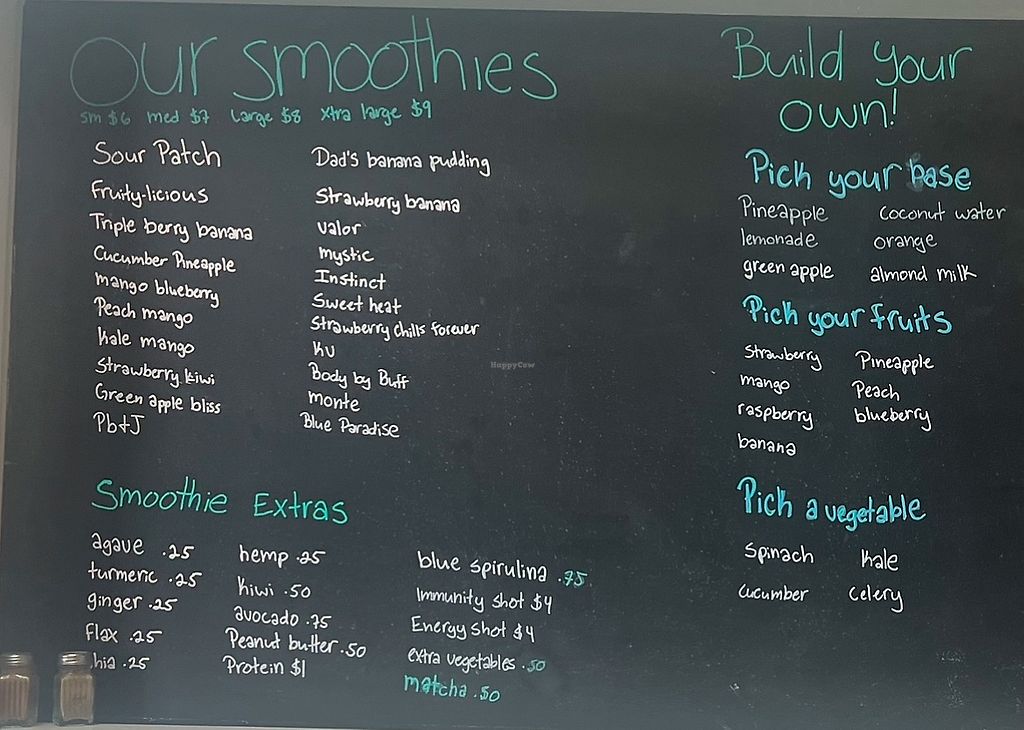 Our Smoothies
sm $6 med $7 Large $8 Xtra large $9
Sour Patch
Fruity-licious
Triple berry banana
Cucumber Pineapple
mango blueberry
Peach mango
Kale mango
Strawberry kiwi
Green apple bliss
Pb+J
Dad's banana pudding
Strawberry banana
valor
mystic
Instinct
Sweet heat
Strawberry chills forever
KU
Body by Buff
monte
Blue Paradise
Smoothie Extras
agave .25
turmeric .25
ginger .25
Flax .25
hia .25
hemp .25
kiwi .50
avocado .75
Peanut butter .50
Protein $1
blue spirulina .75
Immunity shot $4
Energy shot $4
extra vegetables .50
matcha .50
Build your
own!
Pick your base
Pineapple coconut water
lemonade orange
green apple almond milk
Pick your fruits
Strawberry Pineapple
mango Peach
raspberry blueberry
banana
Pick a vegetable
Spinach kale
cucumber celery
HappyCow